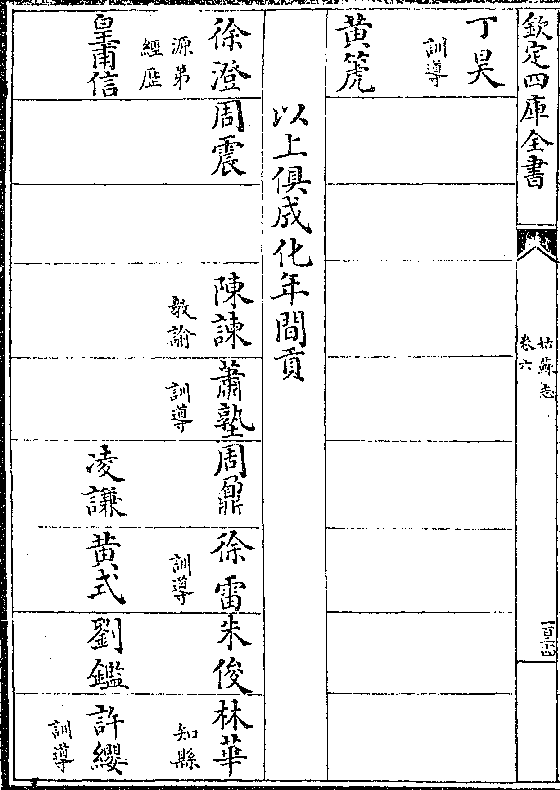 欽定四庫全書
姑蘇志
卷六
丁昊
訓導
黄箎
以上俱成化年間貢
徐澄
源弟
經歴
皇甫信
周震
陳諫
教諭
蕭塾
訓導
周鼐
凌謙
徐雷
訓導
黄式
朱俊
劉鑑
林華
知縣
許纓
訓導